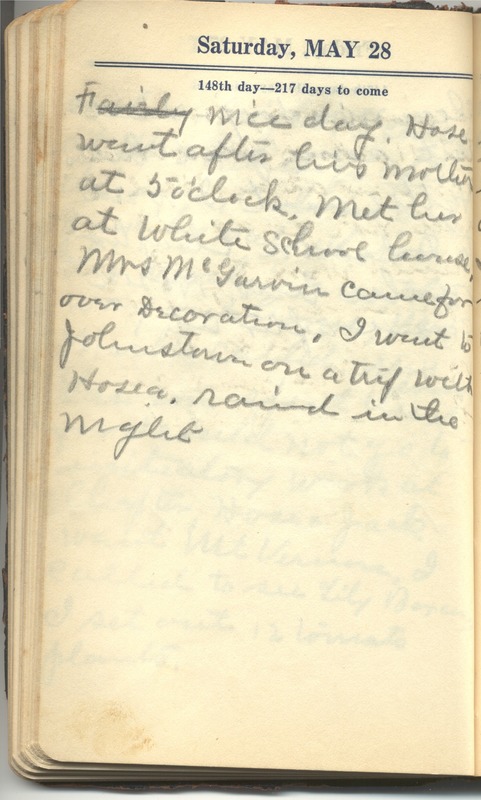 Saturday, MAY 28
148th day—217 days to come
Fairly nice day. Hose
went after his mother
at 5 o'clock. Met her
at White School house,
Mrs McGarvin came for
over Decoration. I went to
Johnstown on a trip with
Hosea. raind in the
night
I set out 12 tomato
plants.